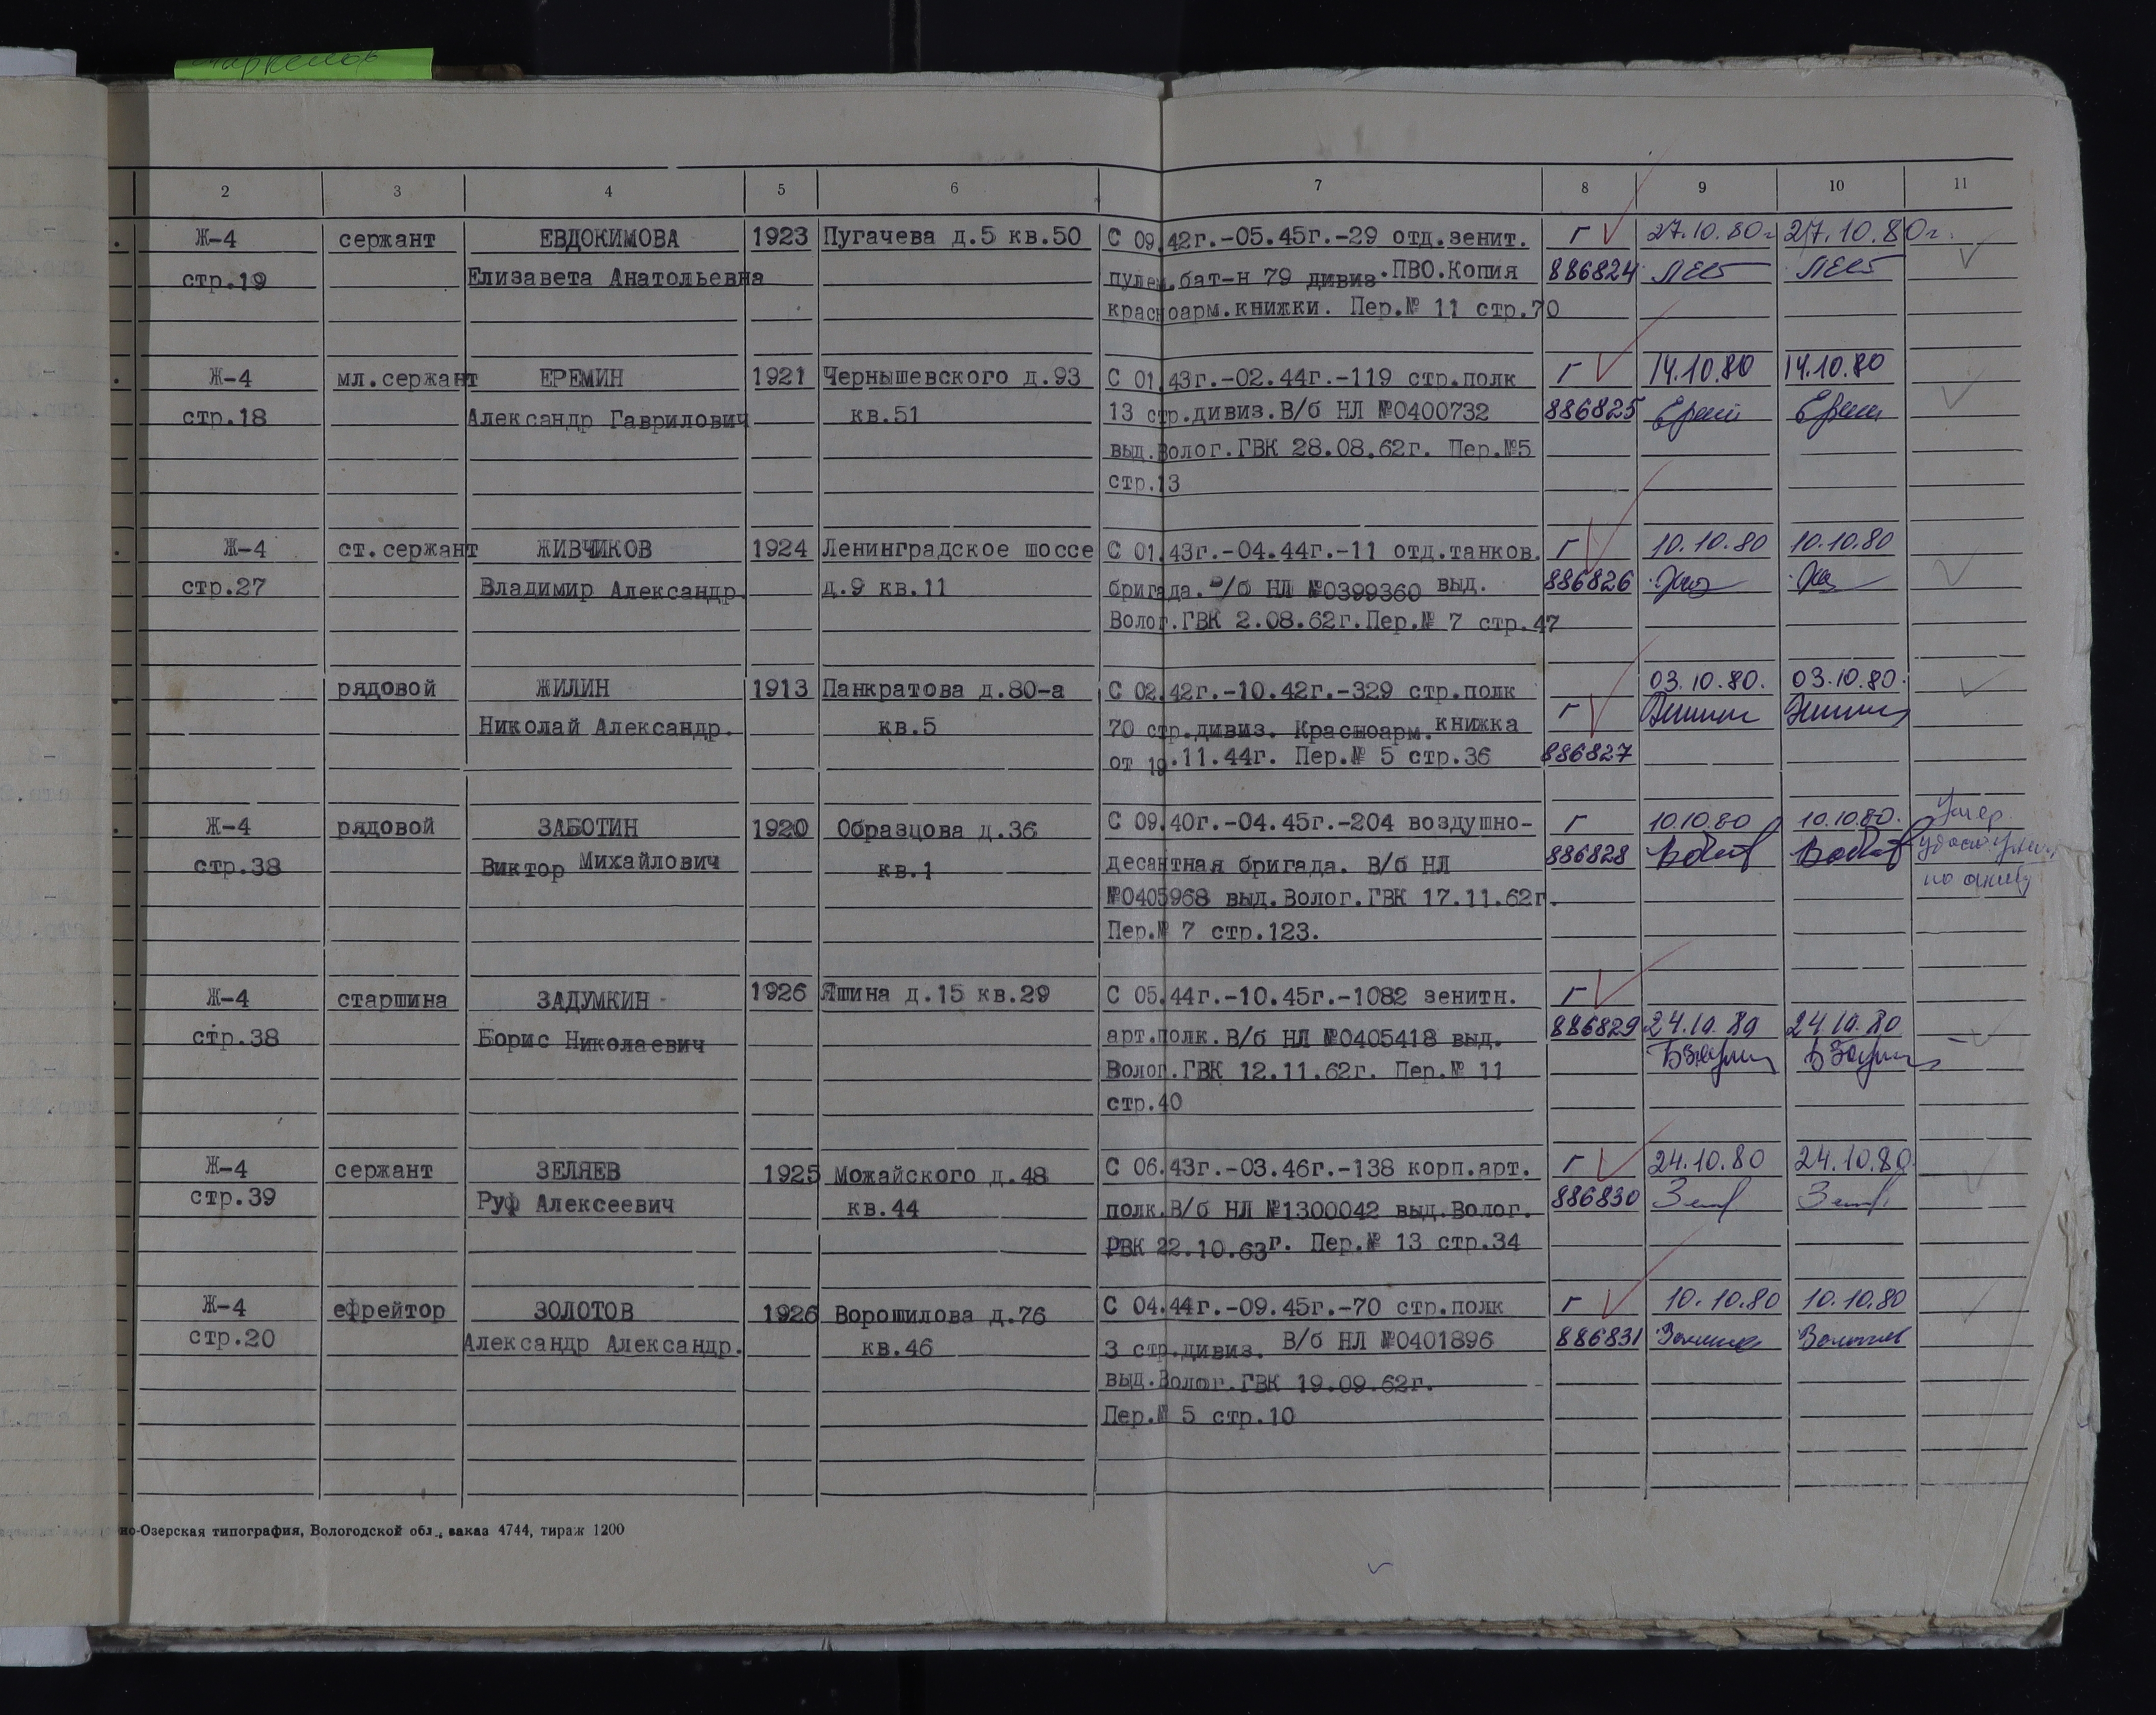 2 3 4 5 6 7 8 9 10 11
Ж-4 сержант ЕВДОКИМОВА 1923 Пугачева д.5 кв.50 С 09.42г.-05.45г.-29 отд.зенит. Г 27.10.80г 27.10.80г.
стр.19 Елизавета Анатольевна пулем.бат-н 79 дивиз.ПВО.Копия 886824
красноарм.книжки. Пер.№ 11 стр.70
Ж-4 мл.сержант ЕРЕМИН 1921 Чернышевского д.93 С 01.43г.-02.44г.-119 стр.полк Г 14.10.80 14.10.80
стр.18 Александр Гаврилович кв.51 13 стр.дивиз.В/б НЛ №0400732 886825
выд.Волог.ГВК 28.08.62г. Пер.№5
стр.13
Ж-4 ст.сержант ЖИВЧИКОВ 1924 Ленинградское шоссе С 01.43г.-04.44г.-11 отд.танков. Г 10.10.80 10.10.80
стр.27 Владимир Александр. д.9 кв.11 бригада.В/б НЛ №0399360 выд. 886826
Волог.ГВК 2.08.62г.Пер.№ 7 стр.47
рядовой ЖИЛИН 1913 Панкратова д.80-а С 02.42г.-10.42г.-329 стр.полк 03.10.80. 03.10.80.
Николай Александр. кв.5 70 стр.дивиз. Красноарм.книжка Г
от 19.11.44г. Пер.№ 5 стр.36 886827
Ж-4 рядовой ЗАБОТИН 1920 Образцова д.36 С 09.40г.-04.45г.-204 воздушно- Г 10.10.80 10.10.80. Умер
стр.38 Виктор Михайлович кв.1 десантная бригада. В/б НЛ 886828
№0405968 выд.Волог.ГВК 17.11.62г.
Пер.№ 7 стр.123.
Ж-4 старшина ЗАДУМКИН 1926 Яшина д.15 кв.29 С 05.44г.-10.45г.-1082 зенитн. Г
стр.38 Борис Николаевич арт.полк.В/б НЛ №0405418 выд. 886829 24.10.80 24.10.80
Волог.ГВК 12.11.62г. Пер.№ 11
стр.40
Ж-4 сержант ЗЕЛЯЕВ 1925 Можайского д.48 С 06.43г.-03.46г.-138 корп.арт. Г 24.10.80 24.10.80
стр.39 Руф Алексеевич кв.44 полк.В/б НЛ №1300042 выд.Волог. 886830
РВК 22.10.63г. Пер.№ 13 стр.34
Ж-4 ефрейтор ЗОЛОТОВ 1926 Ворошилова д.76 С 04.44г.-09.45г.-70 стр.полк Г 10.10.80 10.10.80
стр.20 Александр Александр. кв.46 3 стр.дивиз. В/б НЛ №0401896 886831
выд.Волог.ГВК 19.09.62г.
Пер.№ 5 стр.10
но-Озерская типография, Вологодской обл., заказ 4744, тираж 1200